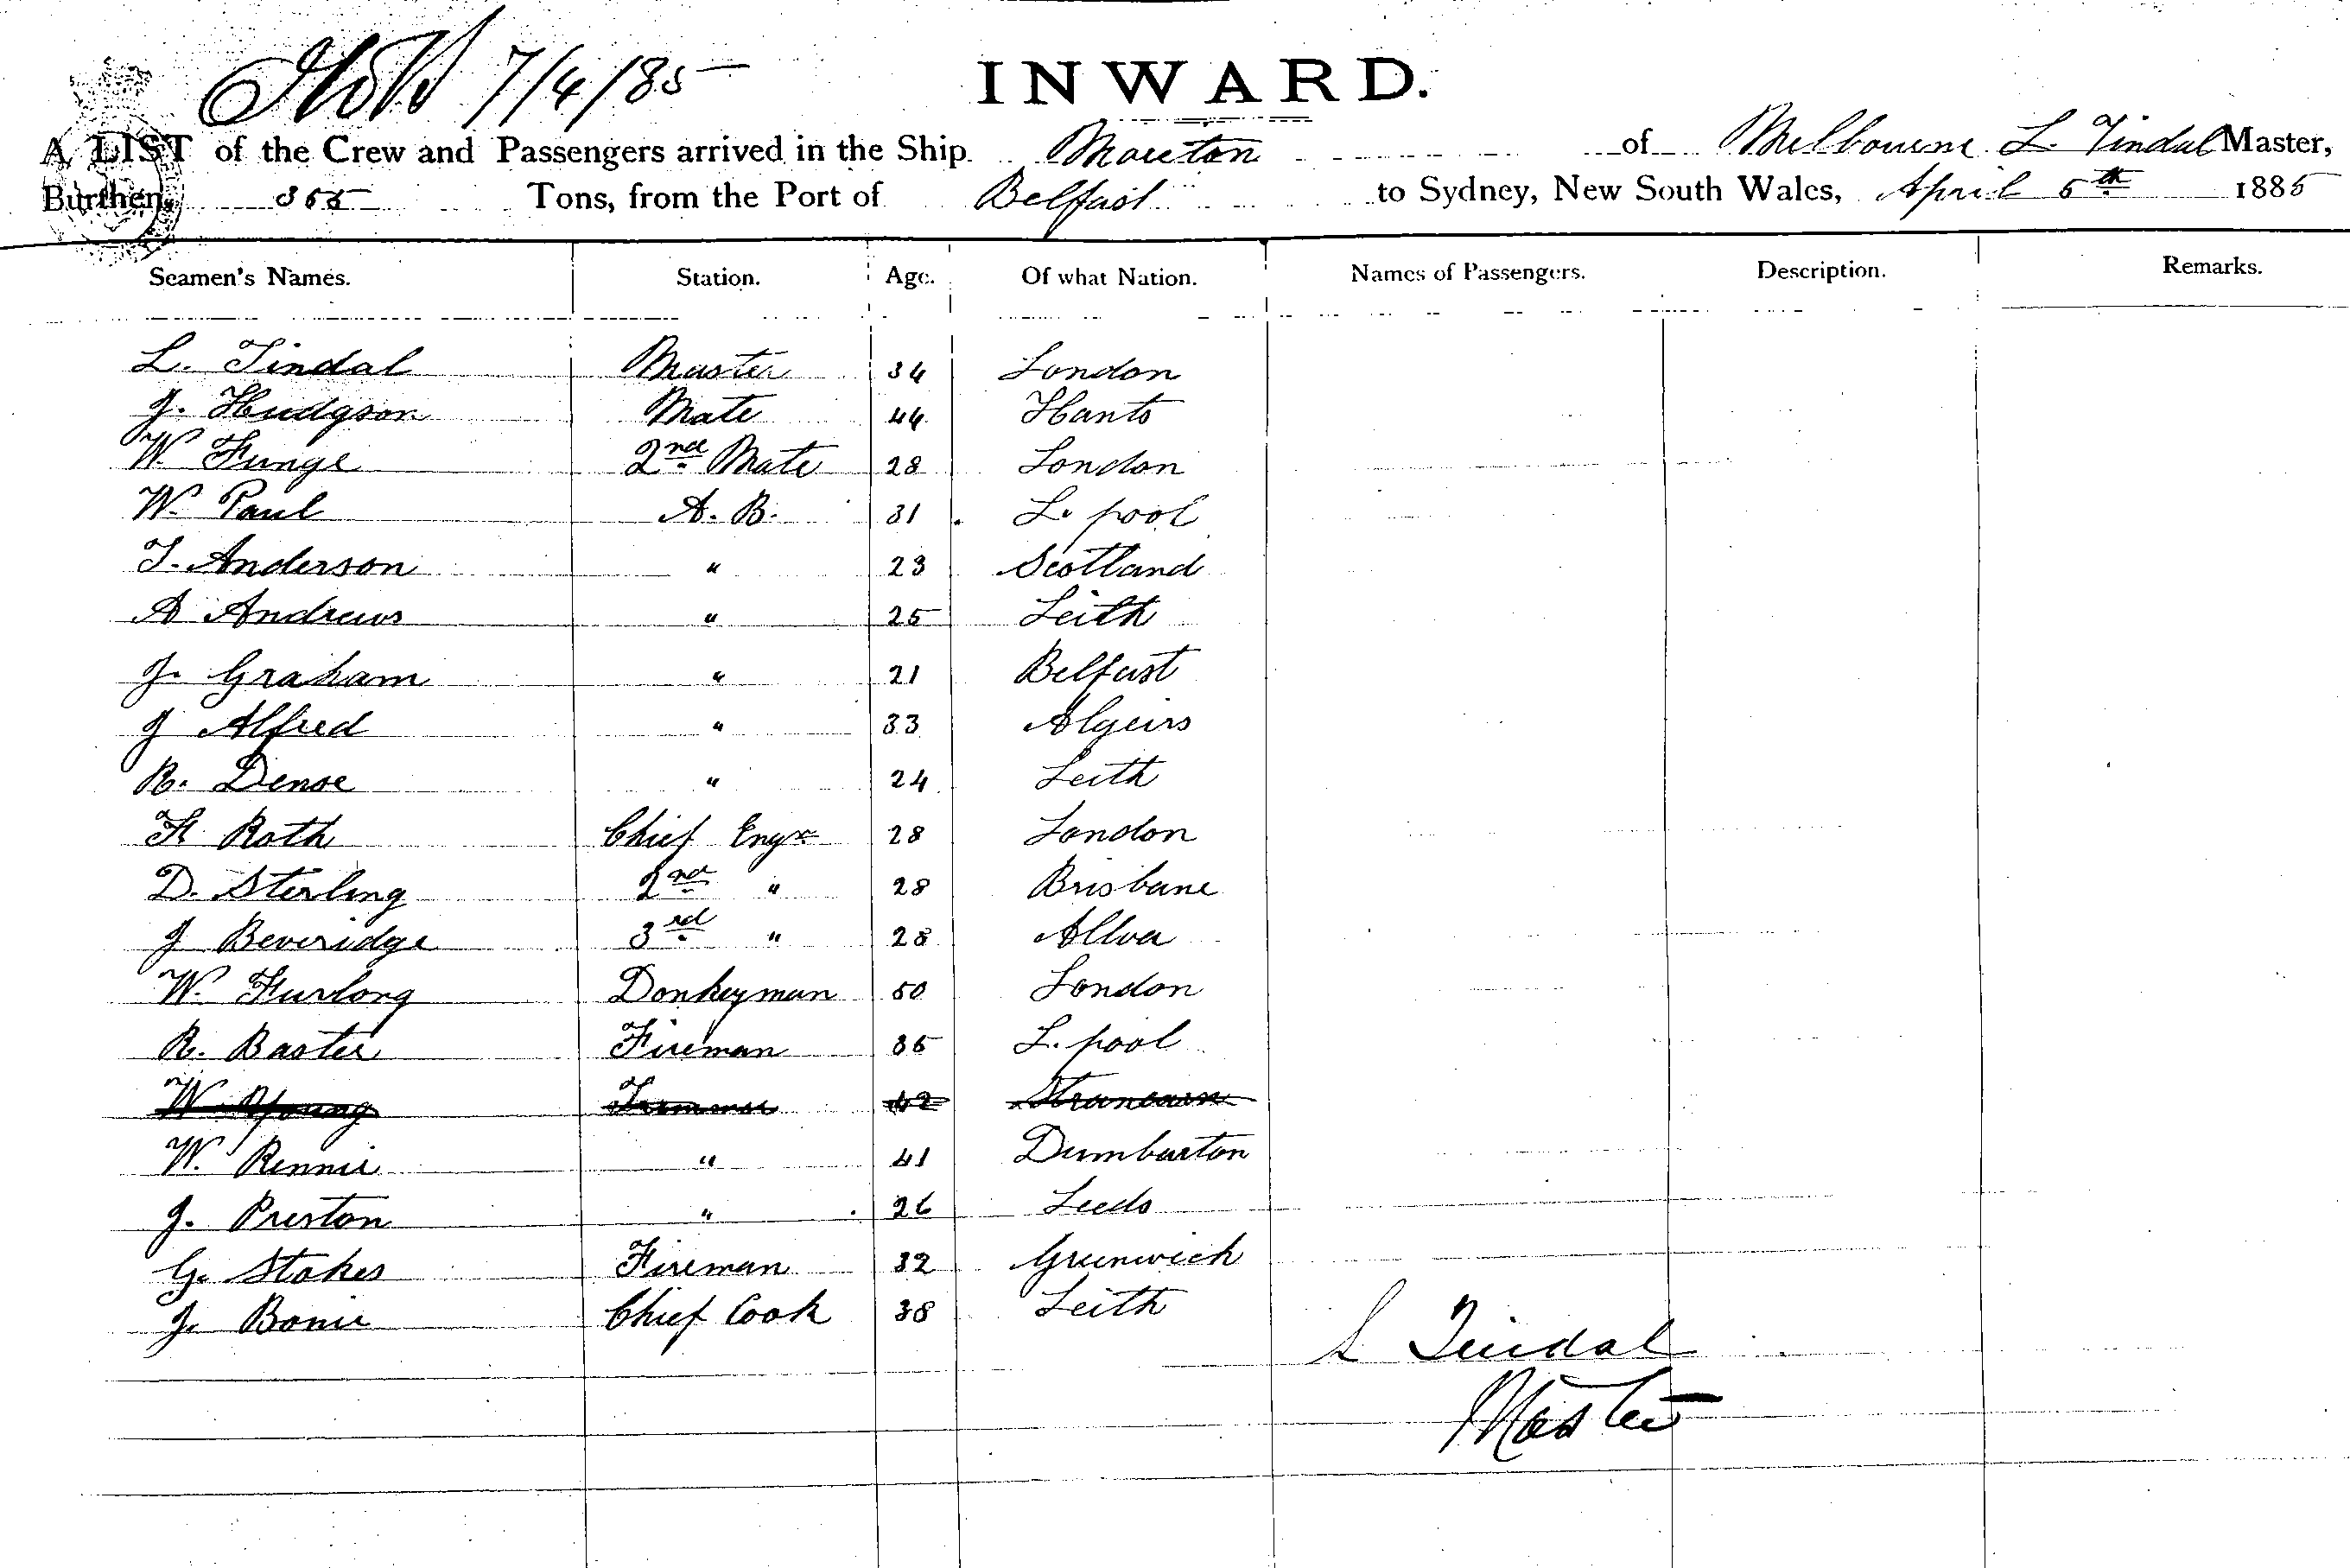 7/4/85
INWARD.
A LIST of the Crew and Passengers arrived in the Ship Moreton of Melbourne L. Tindal Master,
Burthen, 355 Tons, from the Port of Belfast to Sydney, New South Wales, April 5th 1885
Seamen's Names. Station. Age. Of what Nation. Names of Passengers. Description. Remarks.
L. Tindal Master 34 London
J. Hudgson Mate 44 Hants
W. Funge 2nd Mate 28 London
W. Paul A. B. 31 L. pool
T. Anderson " 23 Scotland
A Andrews " 25 Leith
J. Graham " 21 Belfast
J Alfred " 33 Algeirs
R. Dense " 24 Leith
F. Roth Chief Engr 28 London
D. Sterling 2nd " 28 Brisbane
J Beveridge 3rd " 28 Alloa
W. Furlong Donkeyman 50 London
R. Baster Fireman 35 L. pool
W. Young Trimmer 42
W. Rennie " 41 Dumbarton
J. Preston " 26 Leeds
G. Stokes Fireman 32 Greenwich
J. Bonie Chief Cook 38 Leith
L Tindal
Master